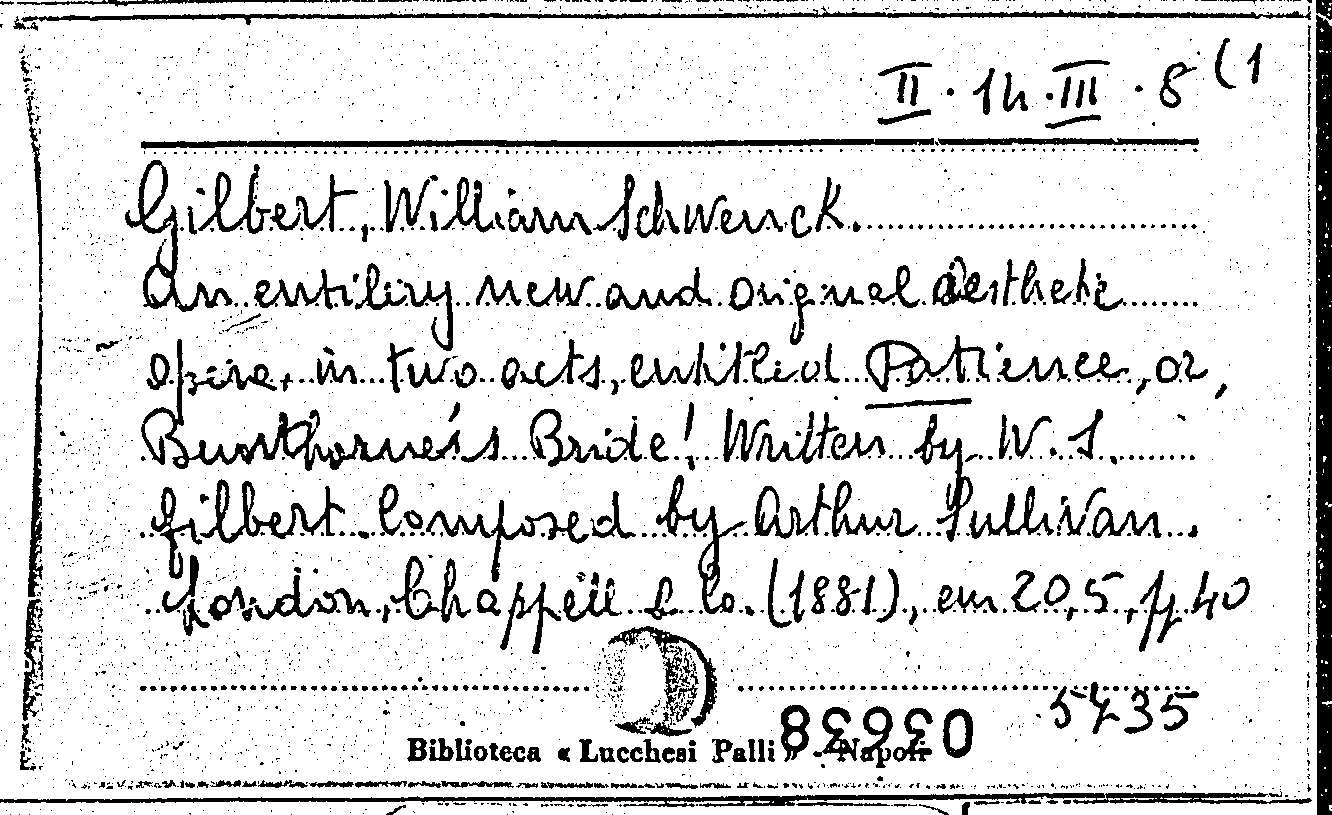 II · 14 · III · 8 (1
Gilbert, William Schwenck.
An entiliry new and original aesthetic
opera, in two acts, entitled Patience, or,
Bunthorne's Bride! Written by W. S.
Gilbert. Composed by Arthur Sullivan.
London, Chappell & Co. (1881), cm 20,5, pp 40
5735
Biblioteca « Lucchesi Palli » - Napoli